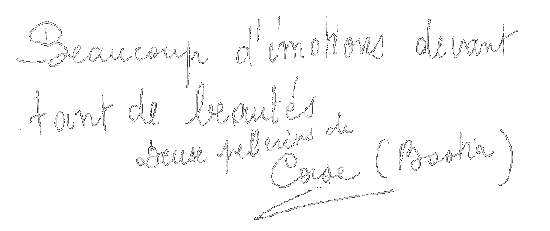 Beaucoup d'émotions devant
tant de beautés
Deux pellerins de
Corse (Bastia)